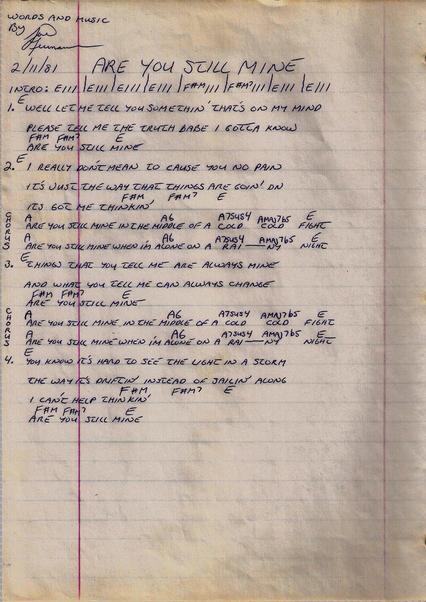 WORDS AND MUSIC
By
2/11/81 ARE YOU STILL MINE
INTRO: E/// | E/// | E/// | E/// | F#M/// | F#M7/// | E/// | E///
E
1. WELL LET ME TELL YOU SOMETHIN' THAT'S ON MY MIND
PLEASE TELL ME THE TRUTH BABE I GOTTA KNOW
F#M F#M7 E
ARE YOU STILL MINE
E
2. I REALLY DON'T MEAN TO CAUSE YOU NO PAIN
IT'S JUST THE WAY THAT THINGS ARE GOIN' ON
F#M F#M7 E
IT'S GOT ME THINKIN'
CHORUS
A A6 A7SUS4 AMAJ7b5 E
ARE YOU STILL MINE IN THE MIDDLE OF A COLD COLD FIGHT
A A6 A7SUS4 AMAJ7b5 E
ARE YOU STILL MINE WHEN I'M ALONE ON A RAI——NY NIGHT
E
3. THINGS THAT YOU TELL ME ARE ALWAYS MINE
AND WHAT YOU TELL ME CAN ALWAYS CHANGE
F#M F#M7 E
ARE YOU STILL MINE
CHORUS
A A6 A7SUS4 AMAJ7b5 E
ARE YOU STILL MINE IN THE MIDDLE OF A COLD COLD FIGHT
A A6 A7SUS4 AMAJ7b5 E
ARE YOU STILL MINE WHEN I'M ALONE ON A RAI——NY NIGHT
E
4. YOU KNOW IT'S HARD TO SEE THE LIGHT IN A STORM
THE WAY IT'S DRIFTIN' INSTEAD OF SAILIN' ALONG
F#M F#M7 E
I CAN'T HELP THINKIN'
F#M F#M7 E
ARE YOU STILL MINE